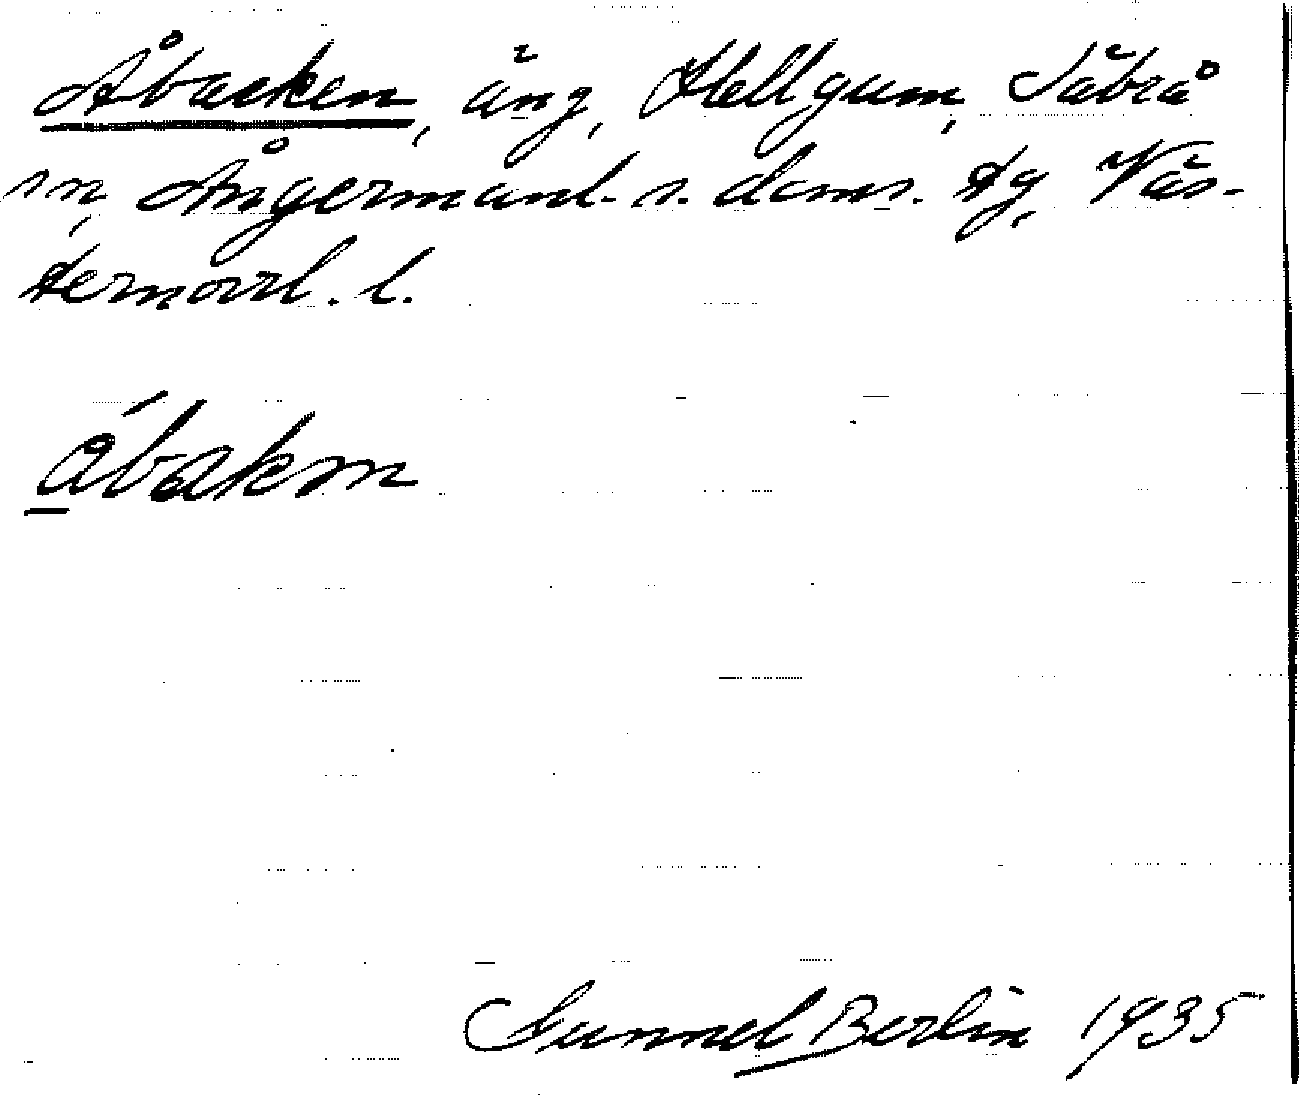 Åbacken, äng, Hellgum, Säbrå
sn, Ångermanl. s. doms. tg, Väs-
ternorrl. l.
åbakm
Gunnel Berlin 1935